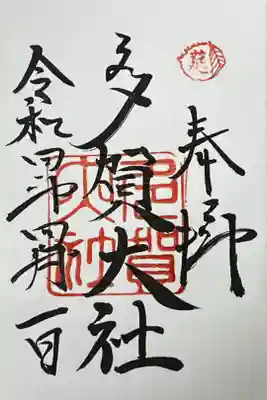 奉拝
多賀大社
令和四年四月一日
多賀大社